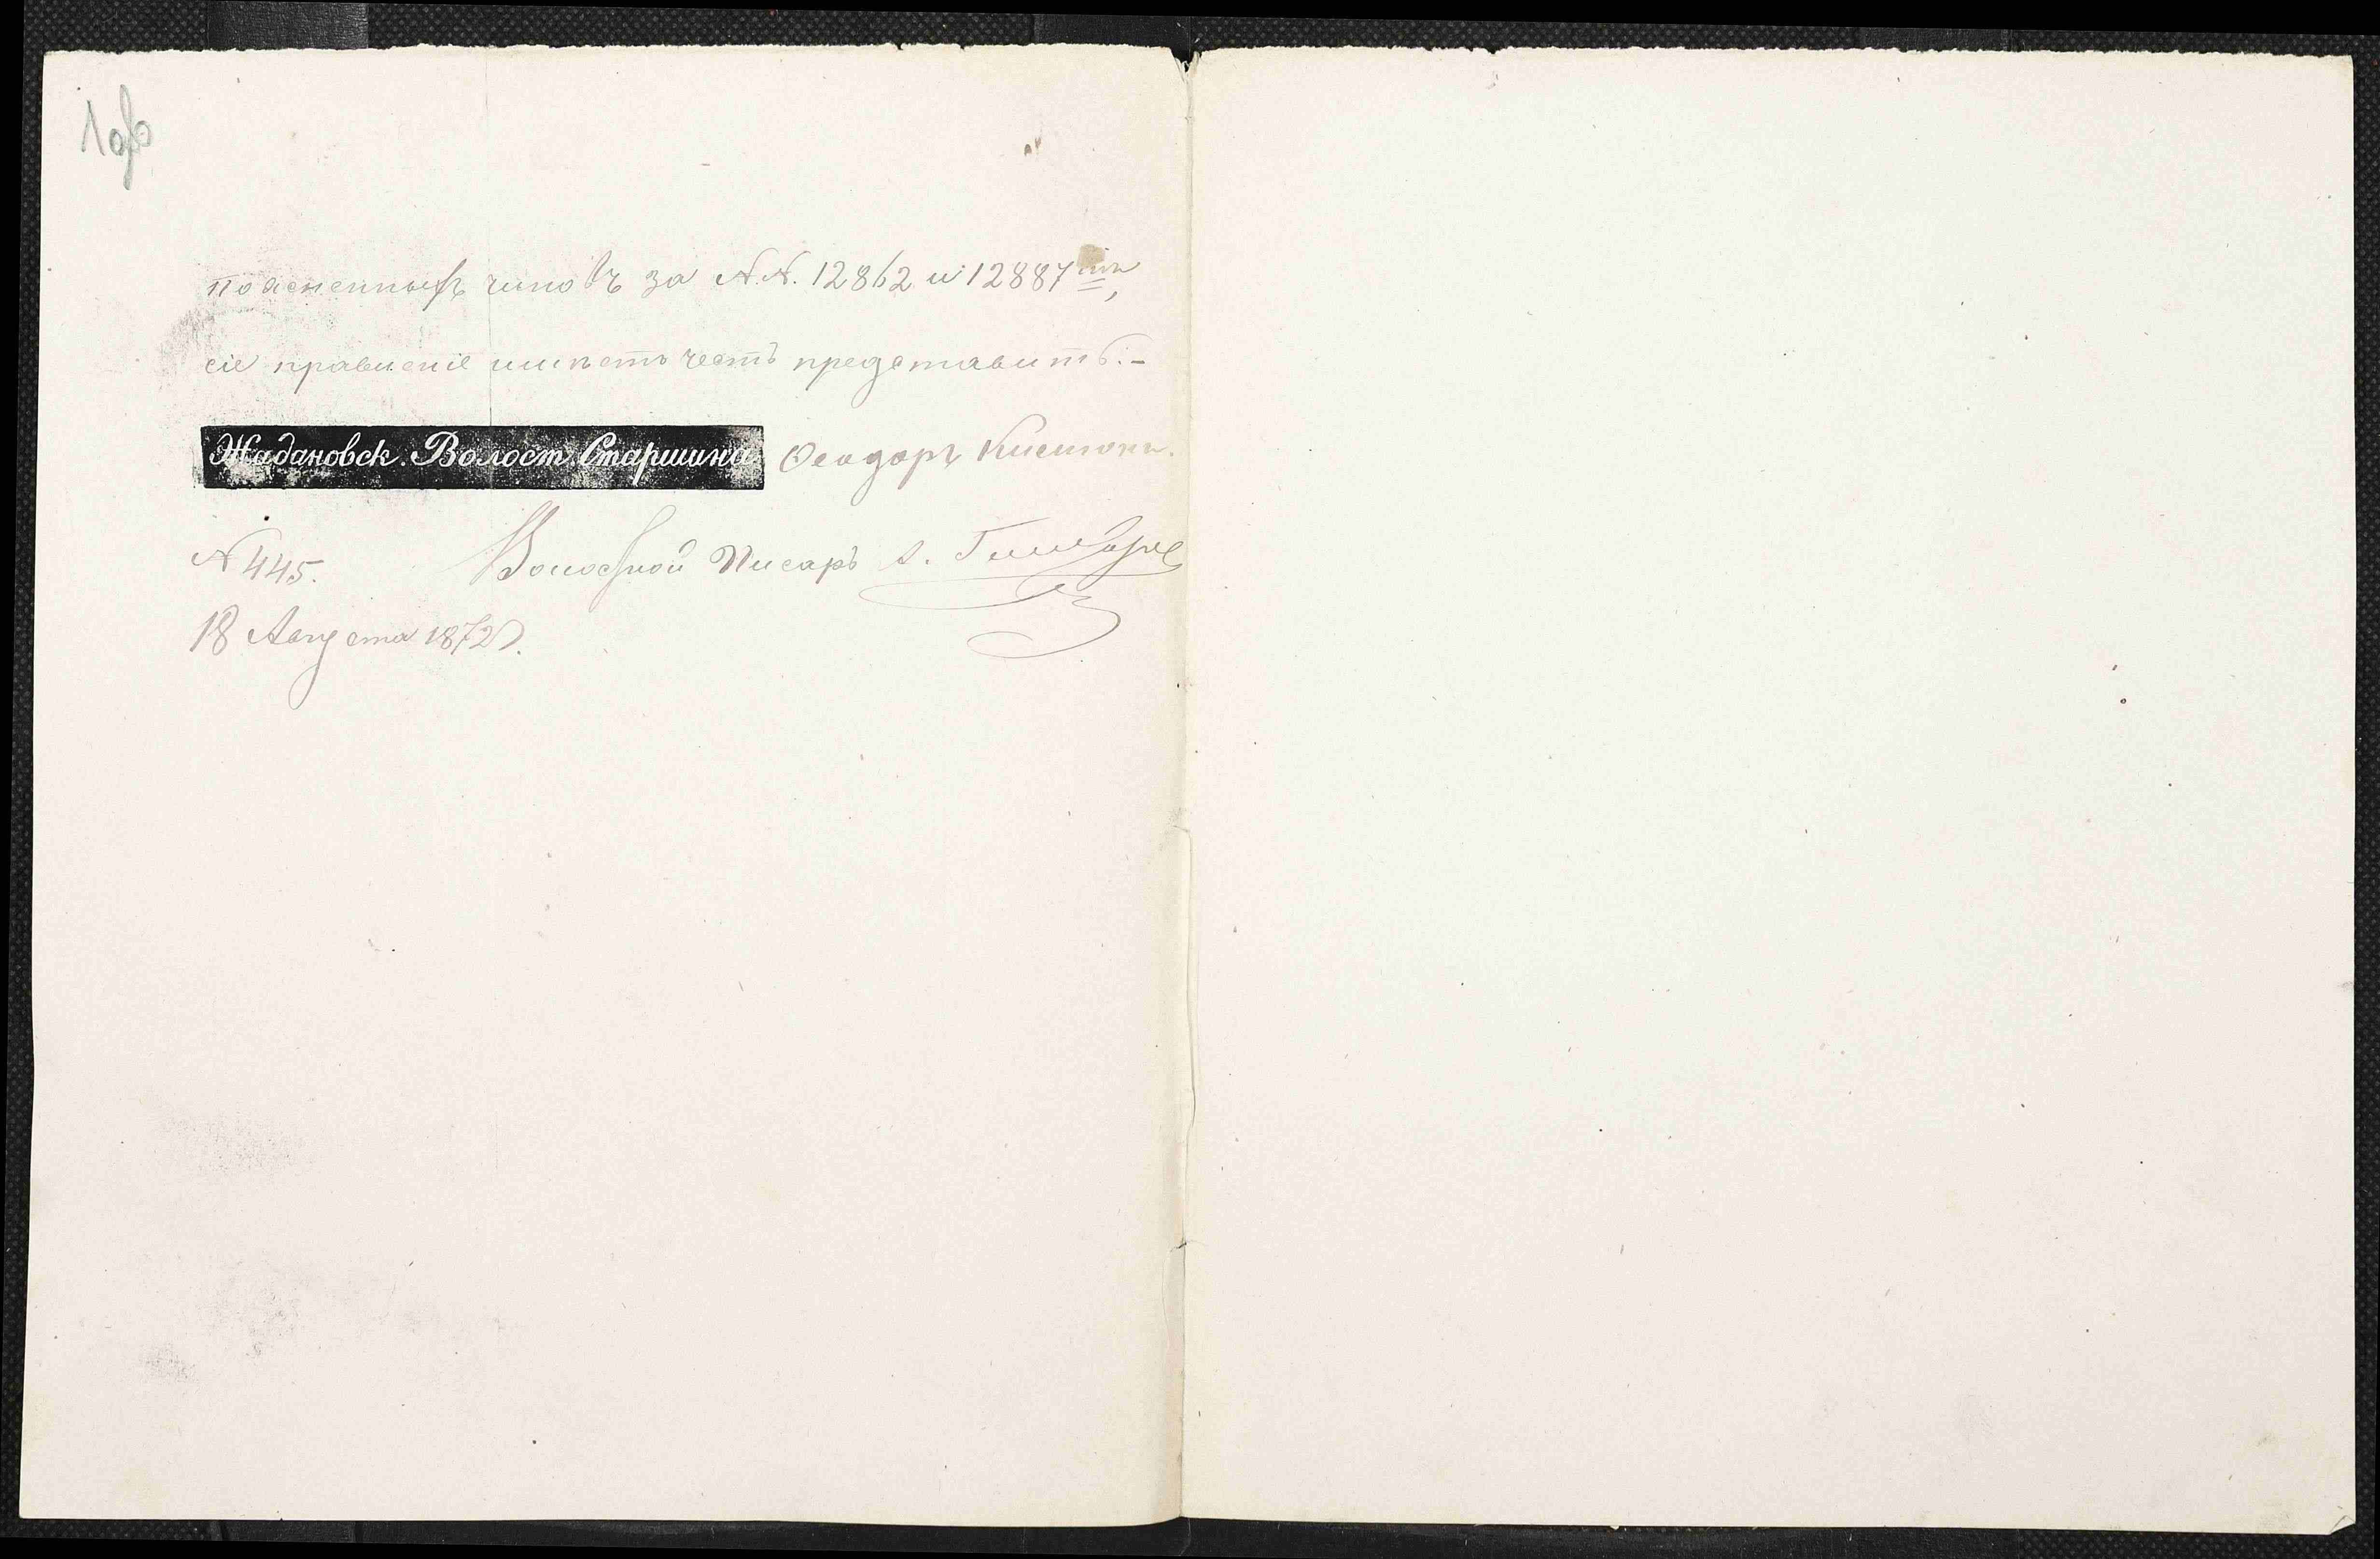 1об
поясненныхъ чиновъ за N.N. 12862 и 12887мъ,
сіе правленіе имѣетъ честь представить.-
Жадановск. Волост. Старшина Феодоръ
N 445. Волостной Писарь
18 Августа 1872 г.